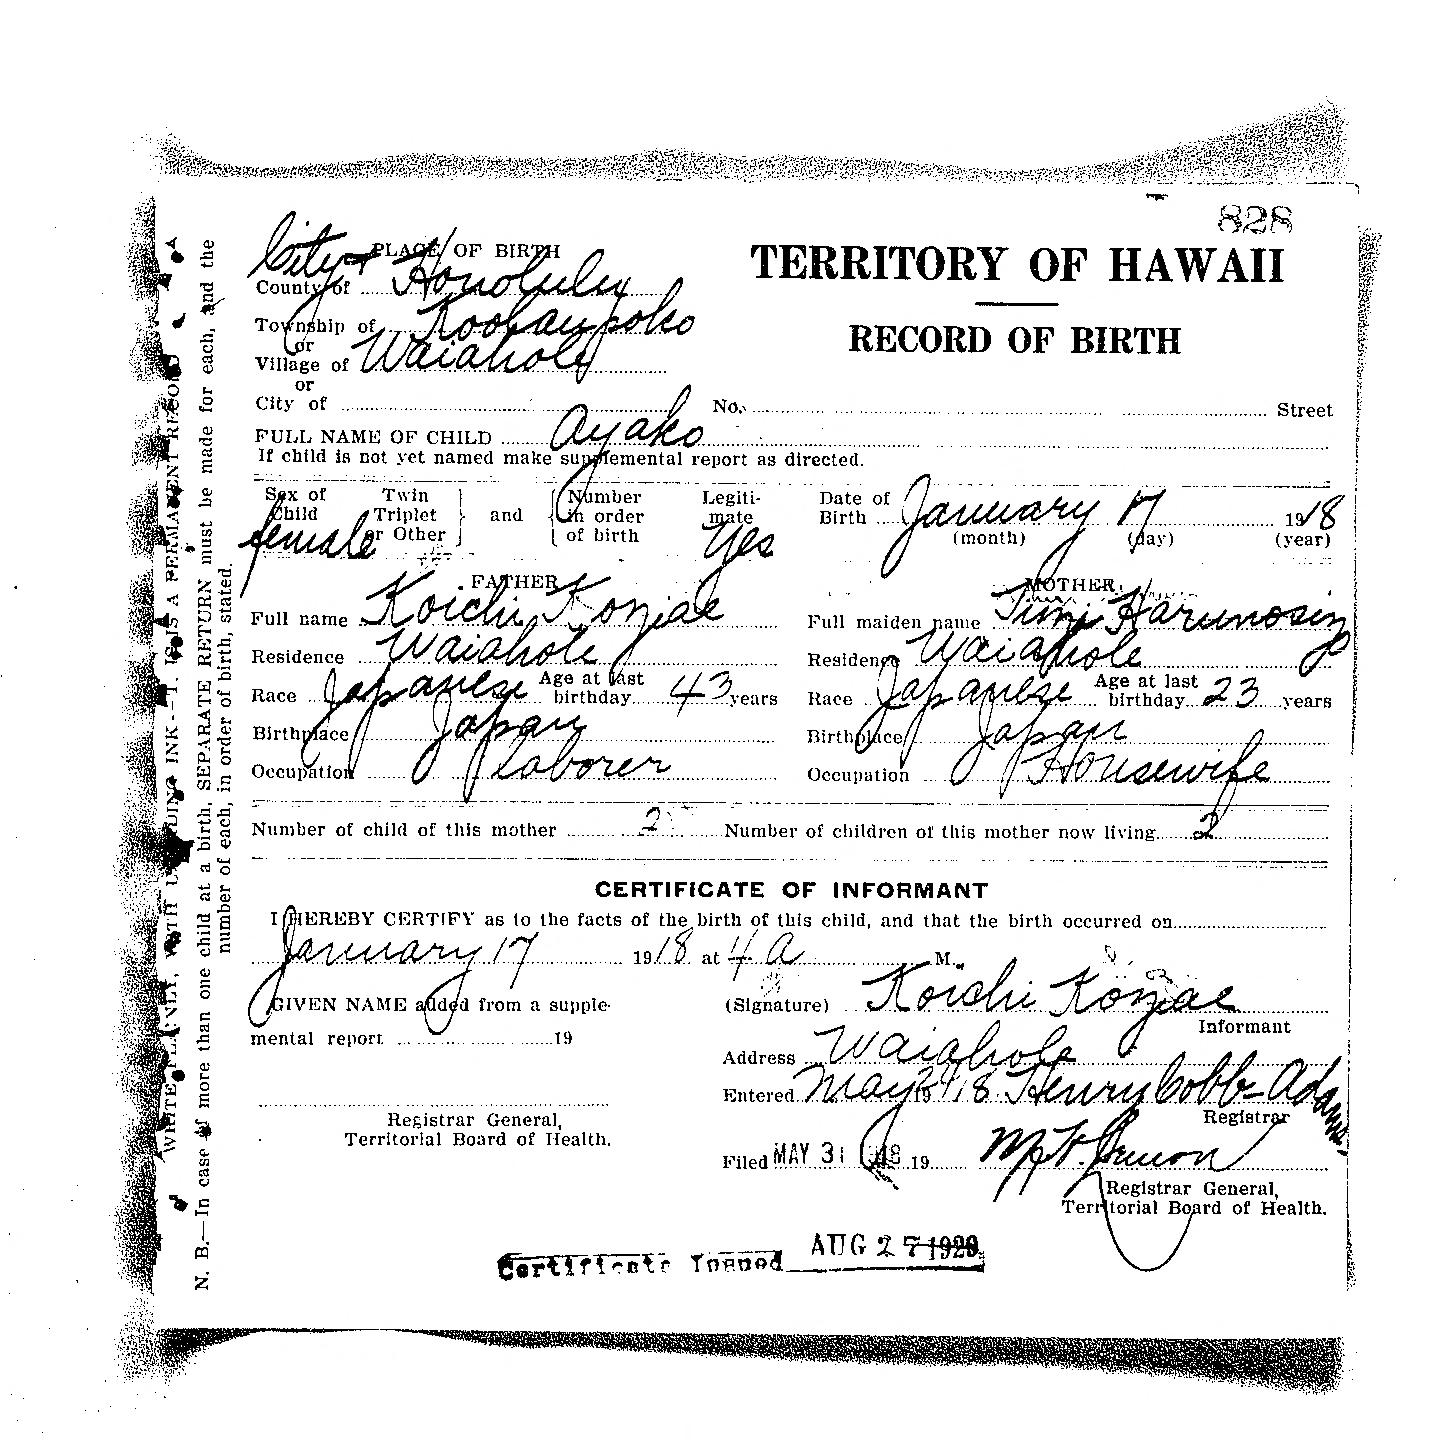 828
TERRITORY OF HAWAII
RECORD OF BIRTH
PLACE OF BIRTH
City &
County of Honolulu
Township of Koolaupoko
or
Village of Waiahole
or
City of No. Street
FULL NAME OF CHILD Ayako
If child is not yet named make supplemental report as directed.
Sex of Child female Twin Triplet or Other } and { Number in order of birth Legiti-mate Yes Date of Birth January 17 1918
(month) (day) (year)
FATHER
Full name Koichi
Residence Waiahole
Race Japanese Age at last birthday 43 years
Birthplace Japan
Occupation laborer
MOTHER
Full maiden name
Residence Waiahole
Race Japanese Age at last birthday 23 years
Birthplace Japan
Occupation Housewife
Number of child of this mother 2 Number of children of this mother now living 2
CERTIFICATE OF INFORMANT
I HEREBY CERTIFY as to the facts of the birth of this child, and that the birth occurred on
January 17 1918 at 4 a M.
GIVEN NAME added from a supple-
mental report 19
Registrar General,
Territorial Board of Health.
(Signature) Koichi
Informant
Address Waiahole
Entered May 1918 Henry Cobb-Adams
Registrar
Filed MAY 31 19
Registrar General,
Territorial Board of Health.
Certificate Issued AUG 27 1929
WRITE PLAINLY, WITH UNFADING INK—THIS IS A PERMANENT RECORD
N. B.—In case of more than one child at a birth, SEPARATE RETURN must be made for each, and the
number of each, in order of birth, stated.